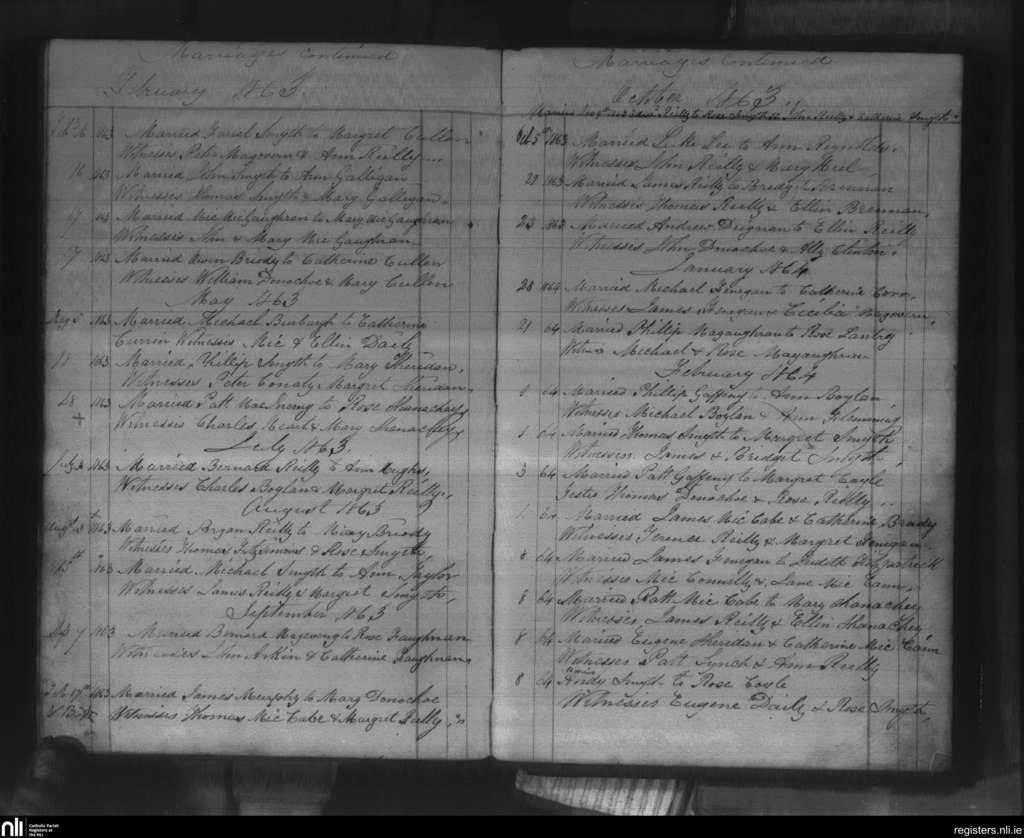 Marriages Continued
February 1863
Feb 16 1863 Married Daniel Smyth to Margret Cullen
Witnesses Peter Magovern & Ann Reilly
16 1863 Married John Smyth to Ann Gallegan
Witnesses Thomas Smyth & Mary Gallegan
17 1863 Married Mic McGaughran to Mary McGaughran
Witnesses John & Mary McGaughran
17 1863 Married Owen Briody to Catherine Cullen
Witnesses William Donochoe & Mary Cullen
May 1863
May 5 1863 Married Michael to Catherine
Witnesses Mic & Ellen Daily
18 1863 Married Phillip Smyth to Mary Sheridan
Witnesses Peter Conaty & Margret Sheridan
28 1863 Married Patt to Rose Shanachey
Witnesses Charles & Mary Shanachey
July 1863
July 1863 Married Bernard Reilly to Ann
Witnesses Charles Boylan & Margret Reilly
August 1863
Aug 1863 Married Bryan Reilly to Mary Briody
Witnesses Thomas Fitzsimons & Rose Smyth
15th 1863 Married Michael Smyth to Ann Taylor
Witnesses James Reilly & Margret Smyth
September 1863
Sep 7 1863 Married Bernard to Rose Gaughran
Witnesses John & Catherine Gaughran
Feb 17th 1863 Married James Murphy to Mary Donochoe
Witnesses Thomas Mic Cabe & Margret Reilly
Marriages Continued
October 1863
Married Reilly to Rose Smyth John Reilly & Catherine Smyth
Oct 5th 1863 Married Luke Lee to Ann Reynolds
Witnesses John Reilly & Mary
22 1863 Married James Reilly to Bredget Brennan
Witnesses Thomas Reilly & Ellen Brennan
23 1863 Married Andrew Deignan to Ellen Reilly
Witnesses John Donochoe & Clinton
January 1864
20 1864 Married Michael Finegan to Catherine
Witnesses James Finegan & Magovern
21 64 Married Phillip Magaughran to Rose
Witness Mechael & Rose Magaughran
February 1864
64 Married Phillip Gaffeny to Ann Boylan
Witnesses Michael Boylan & Ann
1 64 Married Thomas Smyth to Margret Smyth
Witnesses James & Bridget Smyth
3 64 Married Patt Gaffeny to Margret Coyle
Thomas Donochoe & Rose Reilly
Married James Mic Cabe & Catherine Brady
Witnesses Terence Reilly & Margret Finegan
8 64 Married James Finegan to Judeth Fitzpatrick
Witnesses Mic Connelly & Jane Mic Cann
8 64 Married Patt Mic Cabe to Mary Shanachey
Witnesses James Reilly & Ellen Shanachey
8 64 Married Eugene Sheredan & Catherine Mic Cann
Witnesses Patt Lynch & Ann Reilly
8 64 Andy Smyth to Rose Coyle
Witnesses Eugene Daily & Rose Smyth
nli Catholic Parish Registers at the NLI
registers.nli.ie